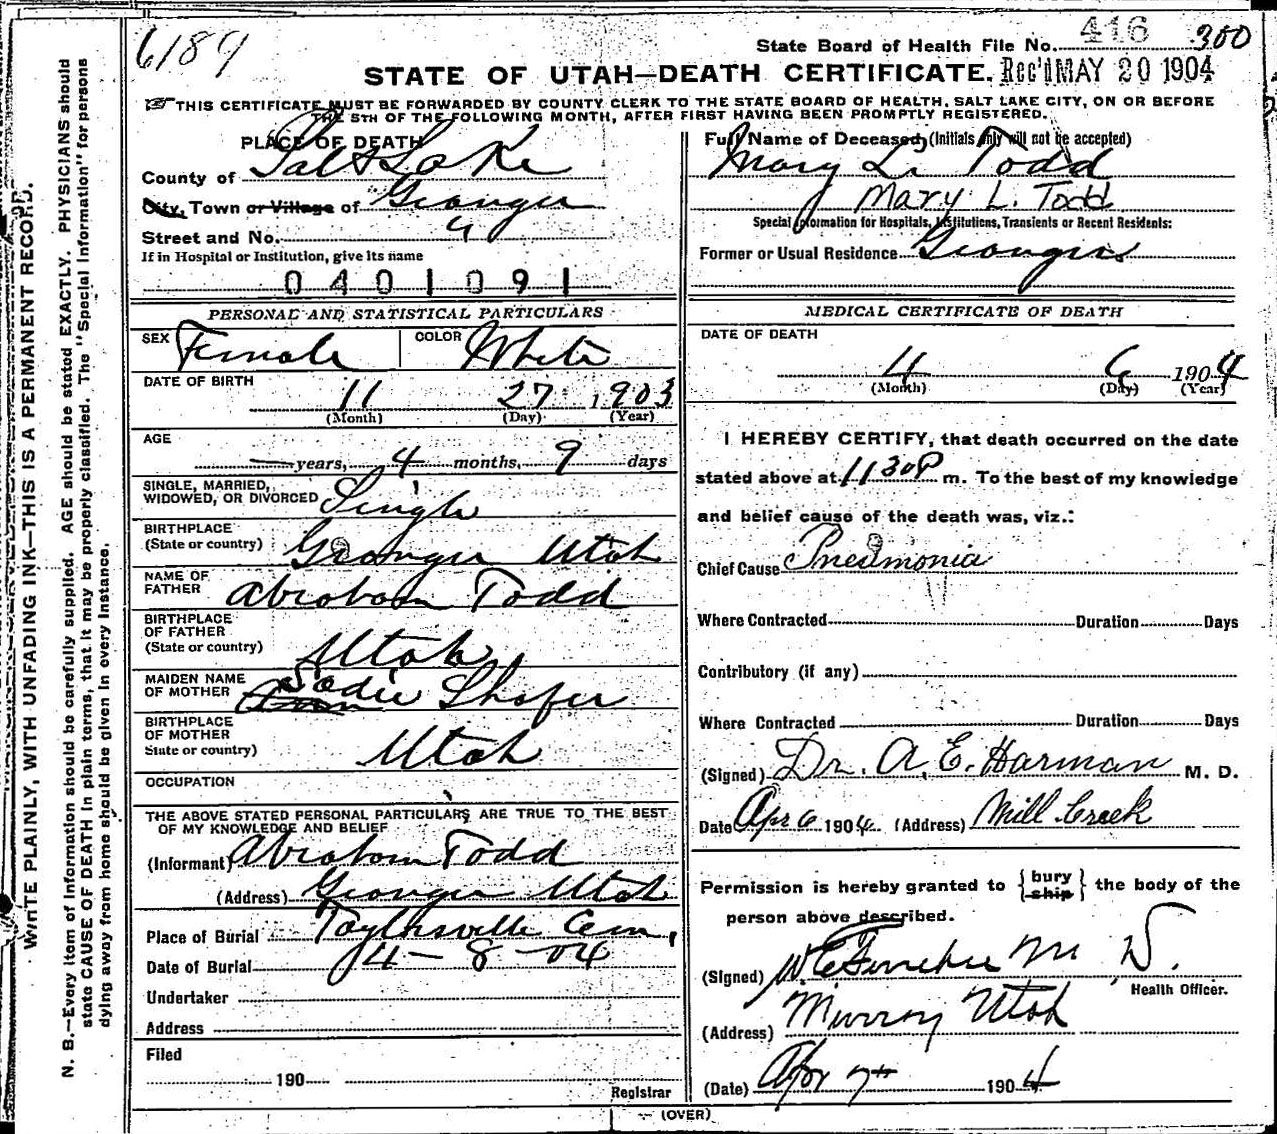 6189
State Board of Health File No. 416 300
STATE OF UTAH—DEATH CERTIFICATE. Rec'd MAY 20 1904
THIS CERTIFICATE MUST BE FORWARDED BY COUNTY CLERK TO THE STATE BOARD OF HEALTH, SALT LAKE CITY, ON OR BEFORE
THE 5TH OF THE FOLLOWING MONTH, AFTER FIRST HAVING BEEN PROMPTLY REGISTERED.
PLACE OF DEATH
County of Salt Lake
City, Town or Village of Granger
Street and No.
If in Hospital or Institution, give its name
0401091
Full Name of Deceased, (Initials only will not be accepted)
Mary L. Todd
Mary L. Todd
Special Information for Hospitals, Institutions, Transients or Recent Residents:
Former or Usual Residence Granger
PERSONAL AND STATISTICAL PARTICULARS
SEX Female COLOR White
DATE OF BIRTH
11 27 1903
(Month) (Day) (Year)
AGE
— years, 4 months, 9 days
SINGLE, MARRIED,
WIDOWED, OR DIVORCED Single
BIRTHPLACE
(State or country) Granger Utah
NAME OF
FATHER Abraham Todd
BIRTHPLACE
OF FATHER
(State or country) Utah
MAIDEN NAME
OF MOTHER Sadie Shafer
BIRTHPLACE
OF MOTHER
State or country) Utah
OCCUPATION
THE ABOVE STATED PERSONAL PARTICULARS ARE TRUE TO THE BEST
OF MY KNOWLEDGE AND BELIEF
(Informant) Abraham Todd
(Address) Granger Utah
Place of Burial Taylorsville Cem.
Date of Burial 4-8-04
Undertaker
Address
Filed
190
Registrar
MEDICAL CERTIFICATE OF DEATH
DATE OF DEATH
4 6 1904
(Month) (Day) (Year)
I HEREBY CERTIFY, that death occurred on the date
stated above at 11 30 P m. To the best of my knowledge
and belief cause of the death was, viz.:
Chief Cause Pneumonia
Where Contracted Duration Days
Contributory (if any)
Where Contracted Duration Days
(Signed) Dr. A. E. Harman M. D.
Date Apr 6 1904 (Address) Mill Creek
Permission is hereby granted to {bury ship} the body of the
person above described.
(Signed) M D.
Health Officer.
(Address) Murray Utah
(Date) Apr 7th 1904
(OVER)
WRITE PLAINLY, WITH UNFADING INK—THIS IS A PERMANENT RECORD.
N. B.—Every item of information should be carefully supplied. AGE should be stated EXACTLY. PHYSICIANS should
state CAUSE OF DEATH in plain terms, that it may be properly classified. The "Special Information" for persons
dying away from home should be given in every instance.